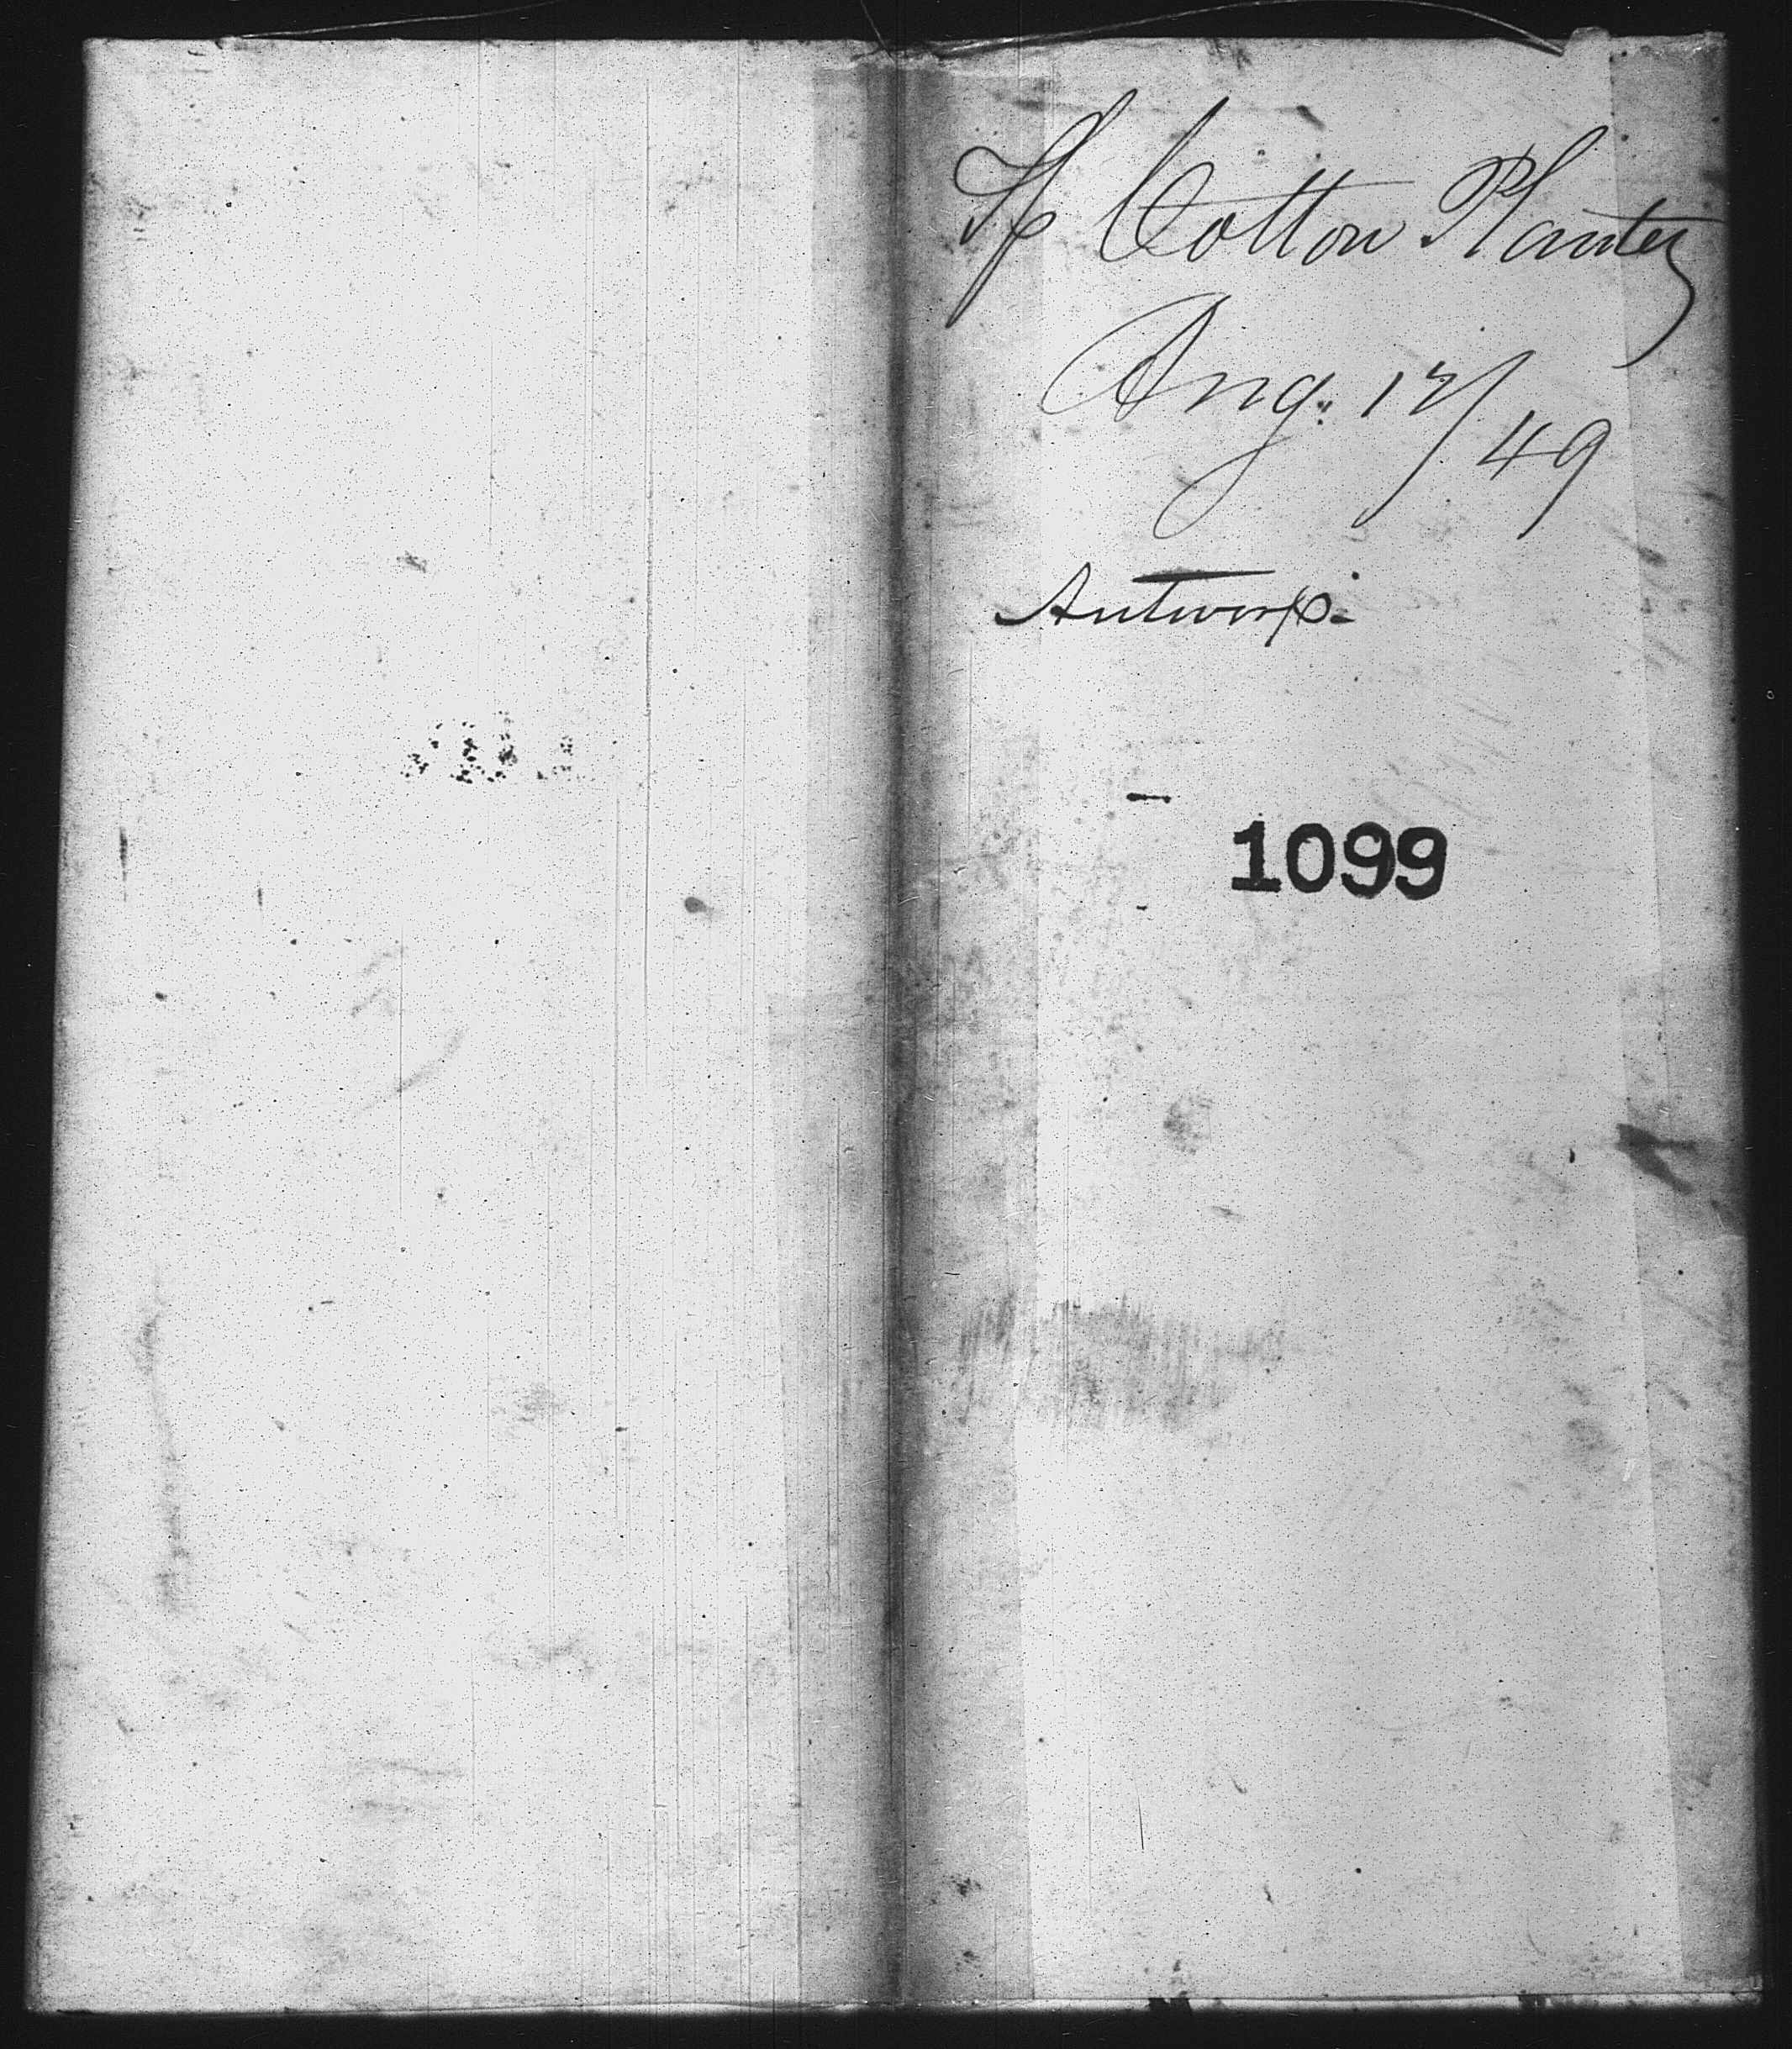 Sp Cotton Planter
Aug. 17/49
Antwerp.
1099